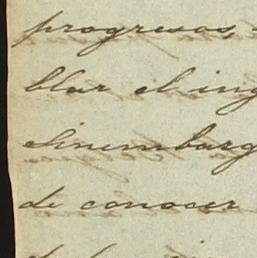 progresos,
blar el ing
sinembarg
de conocer